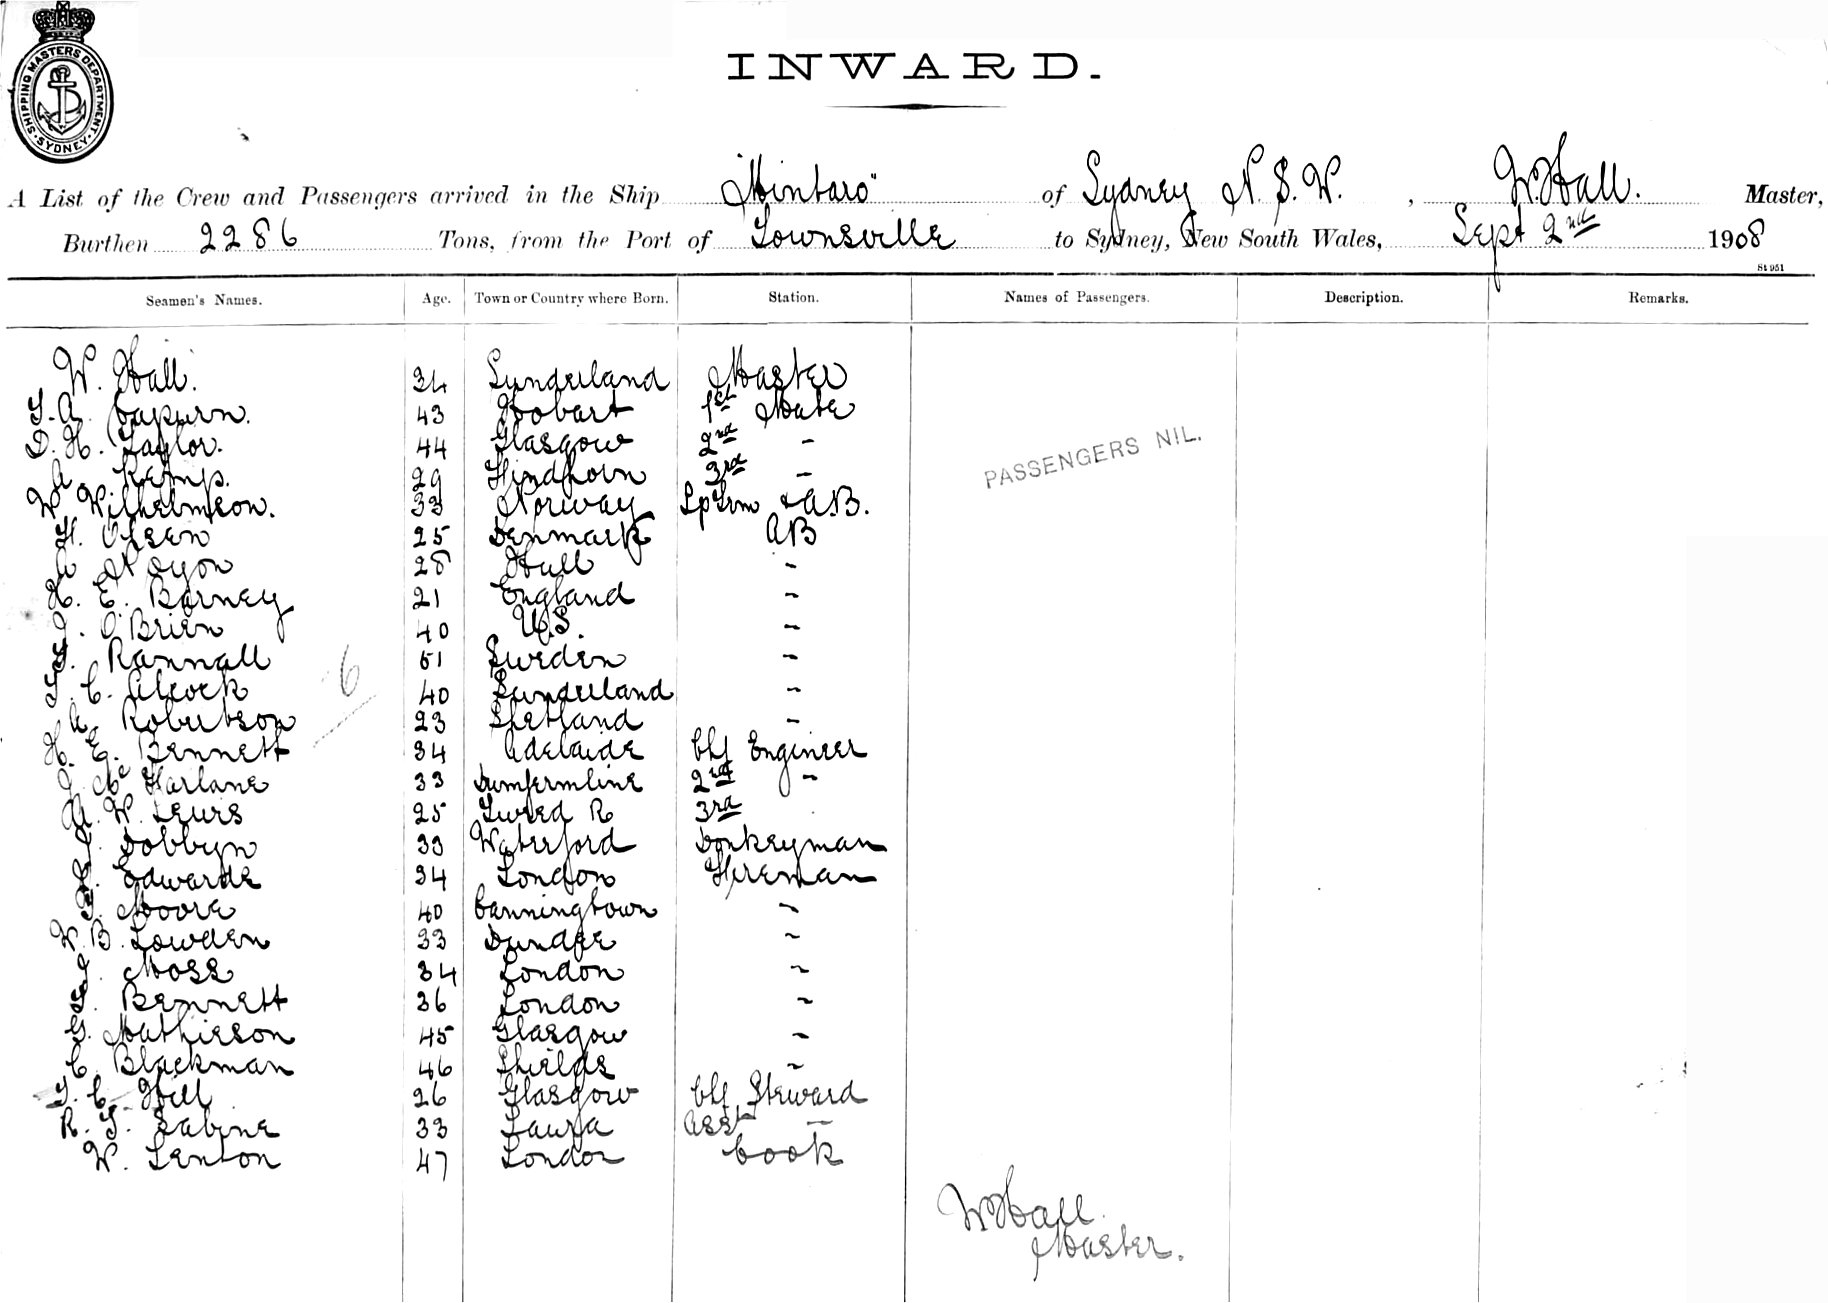 SHIPPING MASTERS DEPARTMENT
SYDNEY
INWARD.
A List of the Crew and Passengers arrived in the Ship "Mintaro" of Sydney N.S.W., W. Hall. Master,
Burthen 2286 Tons, from the Port of Townsville to Sydney, New South Wales, Sept 2nd 1908
St 951
Seamen's Names. Age. Town or Country where Born. Station. Names of Passengers. Description. Remarks.
W. Hall. 34 Sunderland Master
T. A. Capurn. 43 Hobart 1st Mate
D. H. Taylor. 44 Glasgow 2nd -
A Kemp. 29 3rd -
W Wilhelmson. 33 Norway LpTrm & A.B.
H. Olsen 25 Denmark AB
A Nayon 28 Hull -
H. E. Barney 21 England -
J. O'Brien 40 U.S. -
Rannall 51 Sweden -
C. Alcock 40 Sunderland -
A Robertson 23 Shetland -
H. E. Bennett 34 Adelaide Chf Engineer
J. McFarlane 33 Dumfermline 2nd -
A. W. Lewis 25 Tweed R 3rd
J. Dobbyn 33 Waterford Donkeyman
Edwards 34 London Fireman
T. Moore 40 Canningtown -
W B. Lowden 33 Dundee -
J. Moss 34 London -
Bennett 36 London -
G. Mathieson 45 Glasgow -
C. Blackman 46 Shields -
T. C. Hill 26 Glasgow Chf Steward
R. T. Sabine 33 Laura Asst -
W. Lenton 47 London Cook
PASSENGERS NIL.
6
W Hall.
Master.